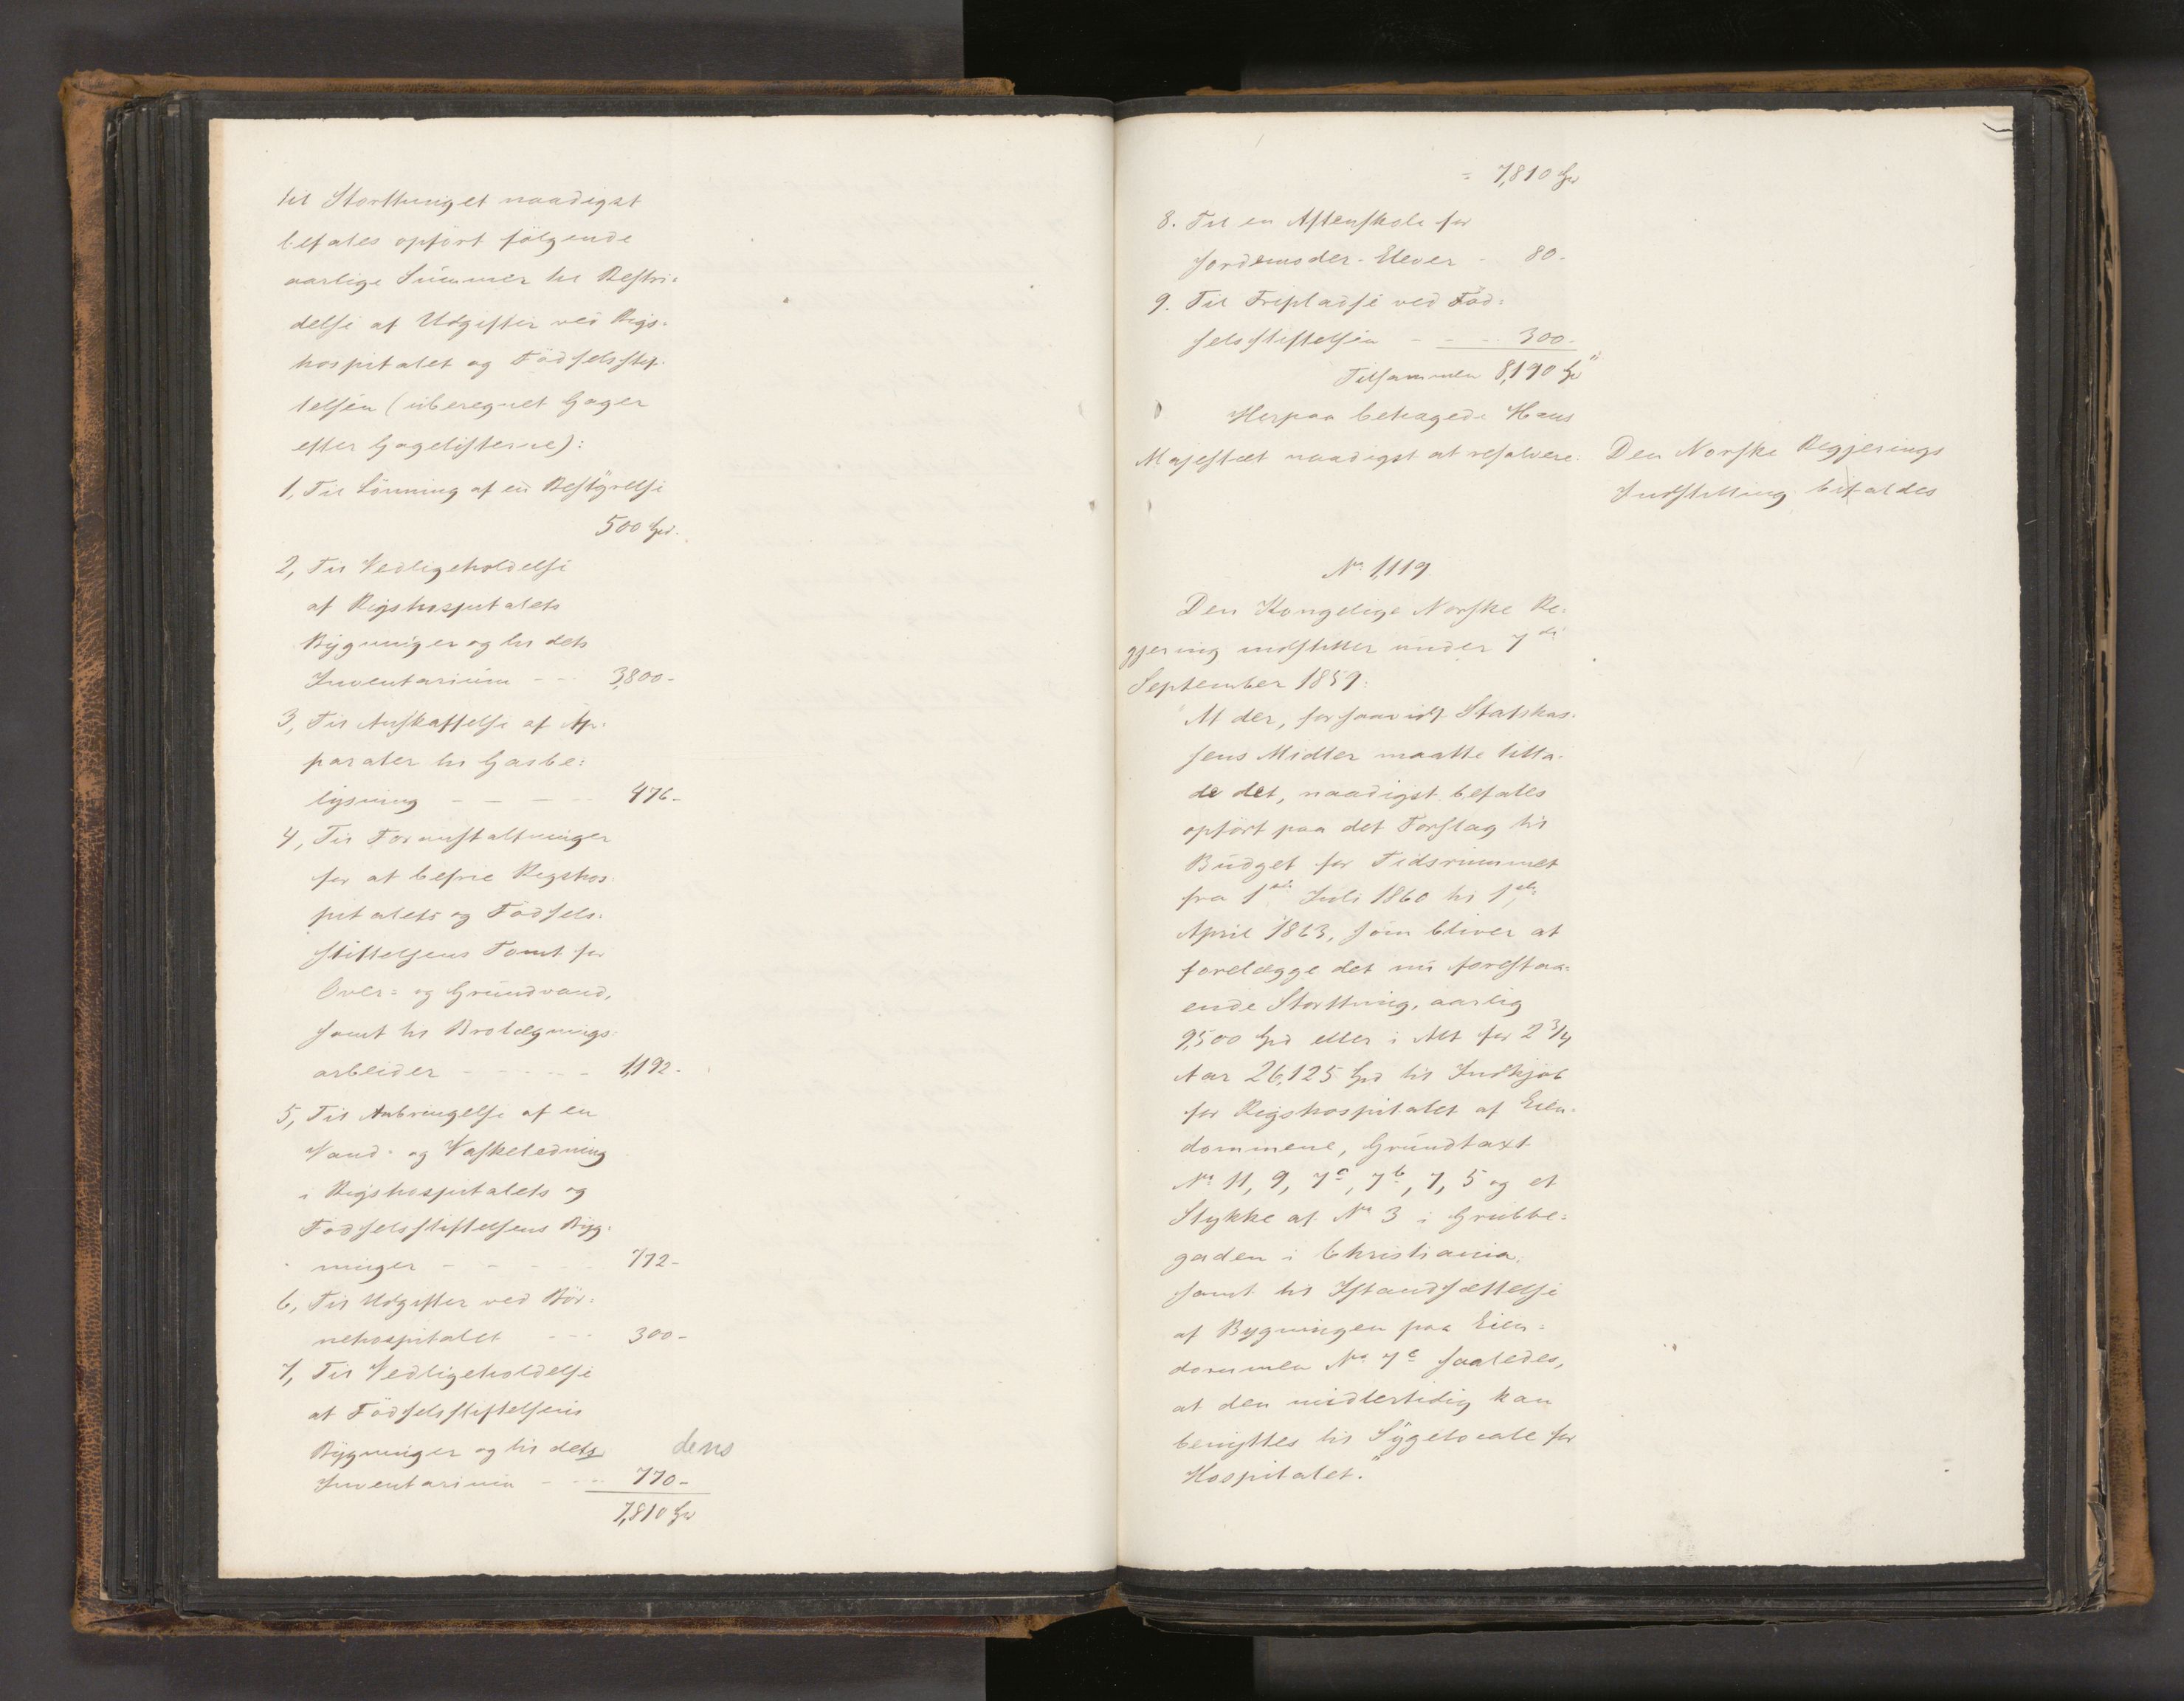 til Storthinget naadigst
befales opført følgende
aarlige Summer til Bestri-
delse af Udgifter ved Rigs-
hospitalet og Fødselsstif-
telsen (uberegnet Gager
efter Gagelisterne):
1, Til Lønning af en Bestyrelse
500 Spd.
2, Til Vedligeholdelse
af Rigshospitalets
Bygninger og til dets
Inventarium - - - 3,800 -
3, Til Anskaffelse af Ap-
parater til Gasbe-
lysning - - - - 476 -
4, Til Foranstaltninger
for at befrie Rigshos-
pitalets og Fødsels-
stiftelsens Tomt for
Over- og Grundvand,
samt til Brolægnings-
arbeider - - - - - 1,192 -
5, Til Anbringelse af en
Vand- og Vaskeledning
i Rigshospitalets og
Fødselsstiftelsens Byg-
ninger - - - - 772 -
6, Til Udgifter ved Bør-
nehospitalet - - - 300 -
7, Til Vedligeholdelse
af Fødselsstiftelsens
Bygninger og til dets dens
Inventarium - - - 770 -
7,810 Spd
= 7,810 Spd
8. Til en Aftenskole for
Jordemoder-Elever - 80 -
9. Til Fripladse ved Fød-
selsstiftelsen - - - 300 -
Tilsammen 8,190 Spd"
Herpaa behagede Hans
Majestæt naadigst at resolvere: Den Norske Regjerings
Indstilling bifaldes
No 1,119
Den Kongelige Norske Re-
gjering indstiller under 7de
September 1859:
"At der, forsaavidt Statskas-
sens Midler maatte tilla-
de det, naadigst befales
opført paa det Forslag til
Budget for Tidsrummet
fra 1ste Juli 1860 til 1ste
April 1863, som bliver at
forelægge det nu forestaa-
ende Storthing, aarlig
9,500 Spd eller i Alt for 2 3/4
Aar 26,125 Spd til Indkjøb
for Rigshospitalet af Eien-
dommene, Grundtaxt
No 11, 9, 7c, 7b, 7, 5 og et
Stykke af No 3 i Grubbe-
gaden i Christiania,
samt til Istandsættelse
af Bygningen paa Eien-
dommen No 7c saaledes,
at den midlertidig kan
benyttes til Sygelocale for
Hospitalet."